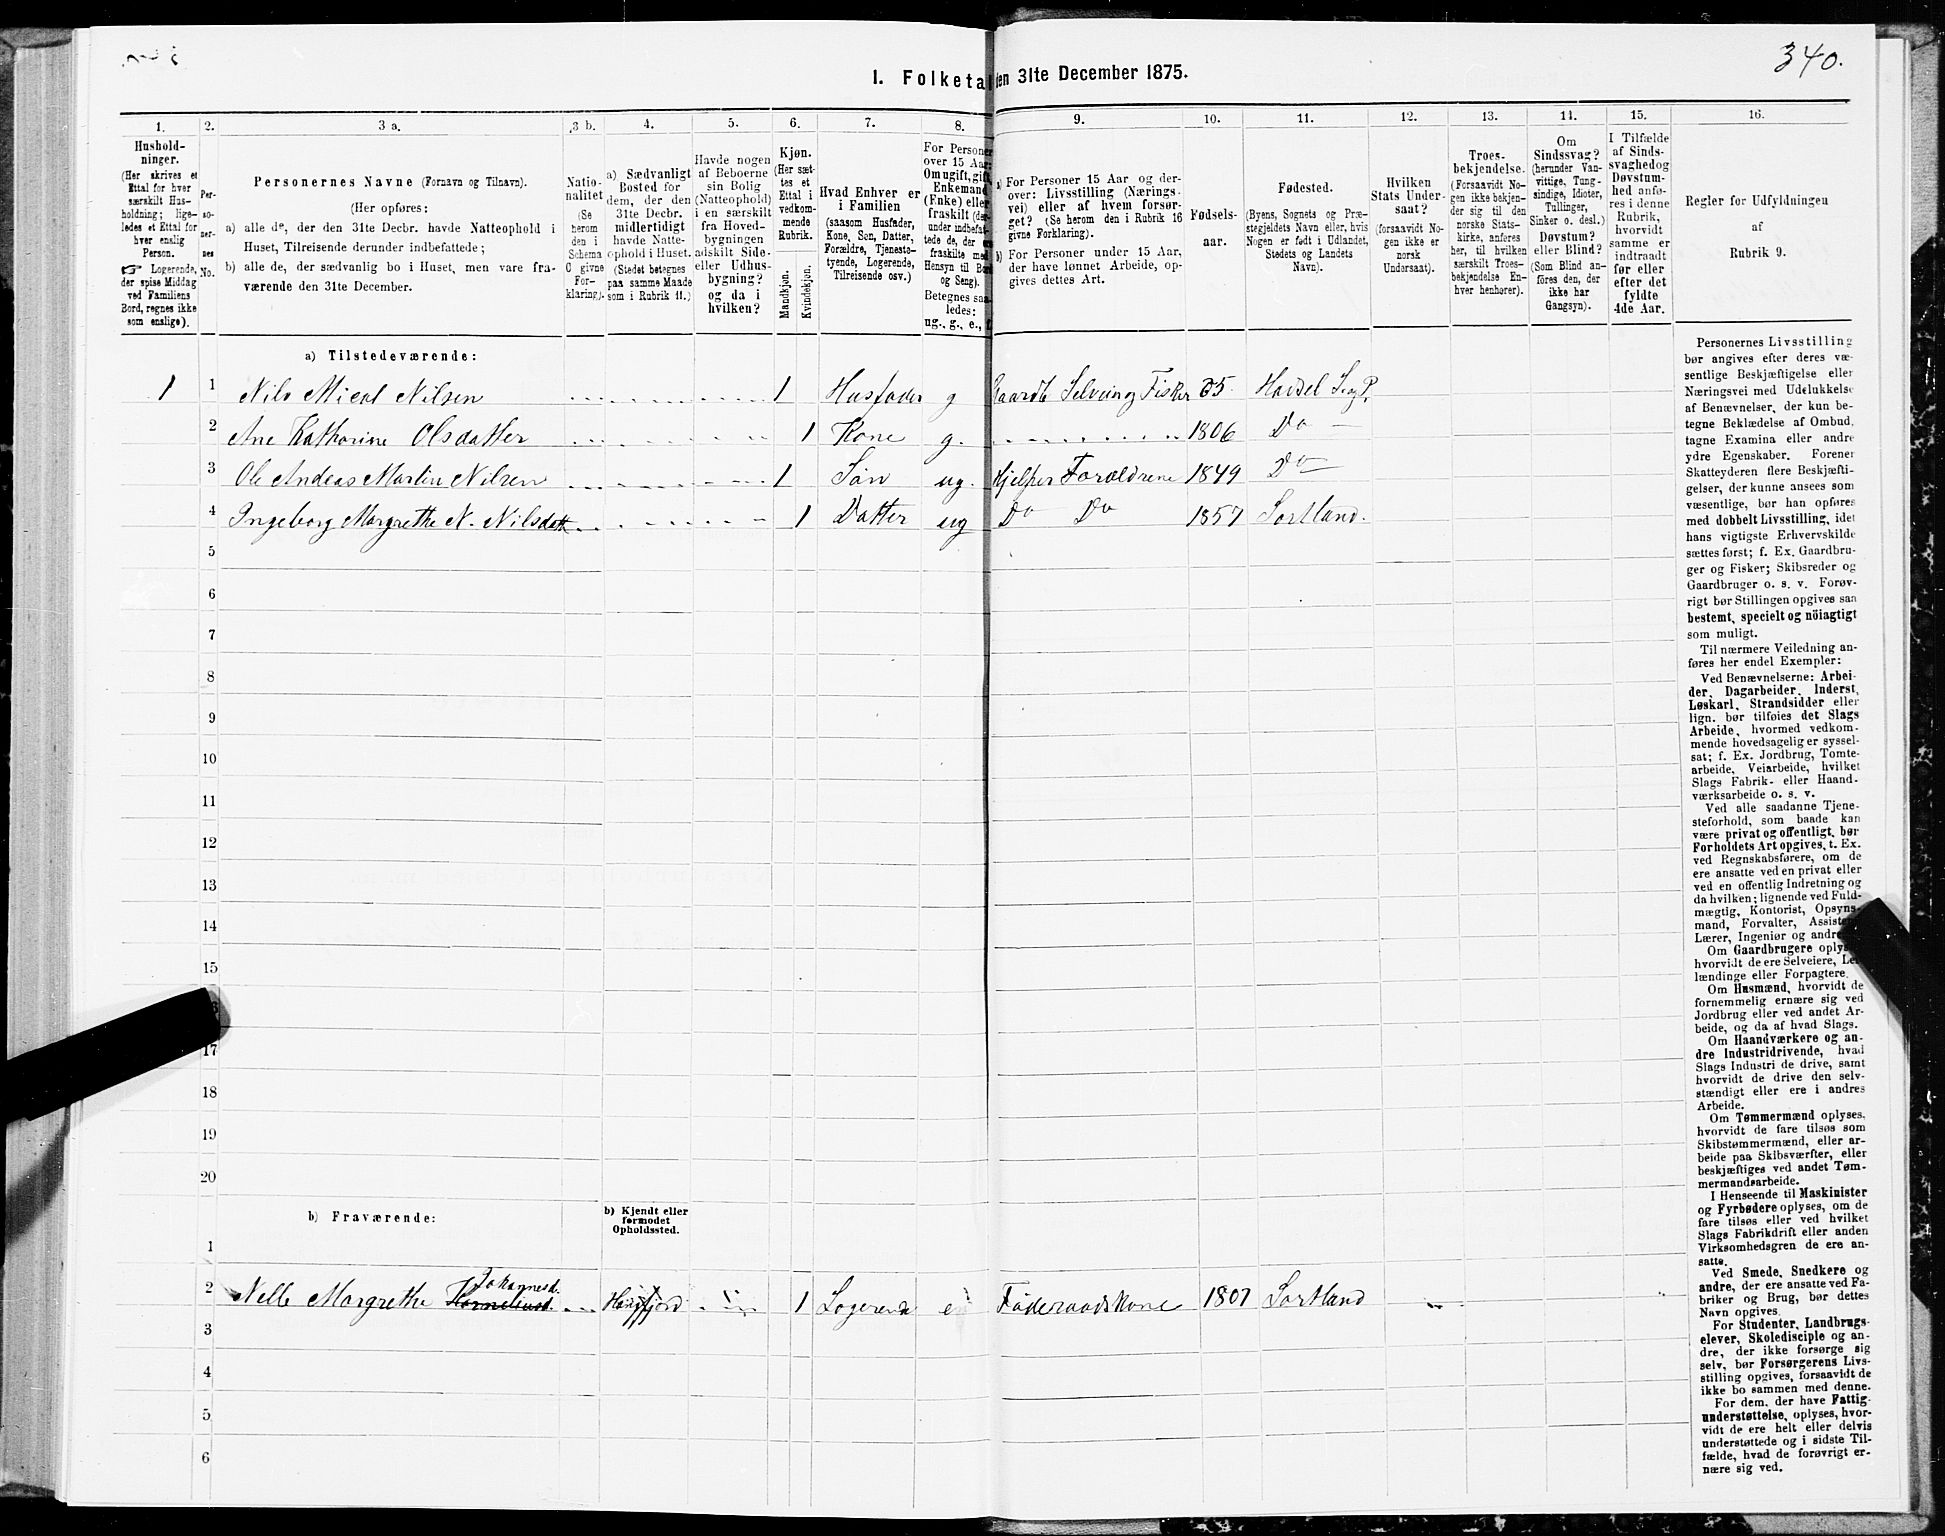 340.
I. Folketal den 31te December 1875.
1. 2. 3 a. 3 b. 4. 5. 6. 7. 8. 9. 10. 11. 12. 13. 14. 15. 16.
Hushold-
ninger.
(Her skrives et
Ettal for hver
særskilt Hus-
holdning; lige-
ledes et Ettal for
hver enslig
Person.
☞ Logerende,
der spise Middag
ved Familiens
Bord, regnes ikke
som enslige).
Per-
so-
ner-
nes
No.
Personernes Navne (Fornavn og Tilnavn).
(Her opføres:
a) alle de, der den 31te Decbr. havde Natteophold i
Huset, Tilreisende derunder indbefattede;
b) alle de, der sædvanlig bo i Huset, men vare fra-
værende den 31te December.
Natio-
nalitet
(Se
herom
den i
Schema
C givne
For-
klaring).
a) Sædvanligt
Bosted for
dem, der den
31te Decbr.
midlertidigt
havde Natte-
ophold i Huset.
(Stedet betegnes
paa samme Maade
som i Rubrik 11.)
Havde nogen
af Beboerne
sin Bolig
(Natteophold)
i en særskilt
fra Hoved-
bygningen
adskilt Side-
eller Udhus-
bygning?
og da i
hvilken?
Kjøn.
(Her sæt-
tes et
Ettal i
vedkom-
mende
Rubrik.
Mandkjøn.
Kvindekjøn.
Hvad Enhver er
i Familien
(saasom Husfader,
Kone, Søn, Datter,
Forældre, Tjenest-
tyende, Logerende,
Tilreisende osv.)
For Personer
over 15 Aar:
Om ugift, gift,
Enkemand
(Enke) eller
fraskilt (der-
under indbefat-
tede de, der ere
fraskilte med
Hensyn til Bord
og Seng).
Betegnes saa-
ledes:
ug., g., e., f.
a) For Personer 15 Aar og der-
over: Livsstilling (Nærings-
vei) eller af hvem forsør-
get? (Se herom den i Rubrik 16
givne Forklaring).
b) For Personer under 15 Aar,
der have lønnet Arbeide, op-
gives dettes Art.
Fødsels-
aar.
Fødested.
(Byens, Sognets og Præ-
stegjeldets Navn eller, hvis
Nogen er født i Udlandet,
Stedets og Landets
Navn).
Hvilken
Stats Under-
saat?
(forsaavidt No-
gen ikke er
norsk
Undersaat).
Troes-
bekjendelse.
(Forsaavidt No-
gen ikke bekjen-
der sig til den
norske Stats-
kirke, anføres
her, til hvilken
særskilt Troes-
bekjendelse En-
hver henhører).
Om
Sindssvag?
(herunder Van-
vittige, Tung-
sindige, Idioter,
Tullinger,
Sinker o. desl.)
Døvstum?
eller Blind?
(Som Blind an-
føres den, der
ikke har
Gangsyn).
I Tilfælde
af Sinds-
svaghed og
Døvstum-
hed anfø-
res i denne
Rubrik,
hvorvidt
samme er
indtraadt
før eller
efter det
fyldte
4de Aar.
Regler for Udfyldningen
af
Rubrik 9.
a) Tilstedeværende:
1 1 Nils Mical Nilsen 1 Husfader g Gaardb Selveier og Fisker 05. Hadsel Sog P.
2 Ane Katharine Olsdatter 1 Kone g. 1806 Do —
3 Ole Andeas Martin Nilsen 1 Søn ug. Hjelper Forældrene 1849 Do
4 Ingeborg Margrethe N. Nilsdatt 1 Datter ug Do Do 1857 Sortland.
5
6
7
8
9
10
11
12
13
14
15
17
18
19
20
b) Fraværende:
b) Kjendt eller
formodet
Opholdssted.
1
Johannesd.
2 Nelle Margrethe Korneliusd. 1 Logerende e Føderaadskone 1807 Sortland
3
4
5
6
Personernes Livsstilling
bør angives efter deres væ-
sentlige Beskjæftigelse eller
Næringsvei med Udelukkelse
af Benævnelser, der kun be-
tegne Beklædelse af Ombud,
tagne Examina eller andre
ydre Egenskaber. Forener
Skatteyderen flere Beskjæfti-
gelser, der kunne ansees som
væsentlige, bør han opføres
med dobbelt Livsstilling, idet
hans vigtigste Erhvervskilde
sættes først; f. Ex. Gaardbru-
ger og Fisker; Skibsreder og
Gaardbruger o. s. v. Forøv-
rigt bør Stillingen opgives saa
bestemt, specielt og nöiagtigt
som muligt.
Til nærmere Veiledning an-
føres her endel Exempler:
Ved Benævnelserne: Arbei-
der, Dagarbeider, Inderst,
Løskarl, Strandsidder eller
lign. bør tilføies det Slags
Arbeide, hvormed vedkom-
mende hovedsagelig er syssel-
sat; f. Ex. Jordbrug, Tomte-
arbeide, Veiarbeide, hvilket
Slags Fabrik- eller Haand-
værksarbeide o. s. v.
Ved alle saadanne Tjene-
steforhold, som baade kan
være privat og offentligt, bør
Forholdets Art opgives, t. Ex.
ved Regnskabsførere, om de
ere ansatte ved en privat eller
ved en offentlig Indretning og
da hvilken; lignende ved Fuld-
mægtig, Kontorist, Opsyns-
mand, Forvalter, Assistent,
Lærer, Ingeniør og andre.
Om Gaardbrugere oplyses,
hvorvidt de ere Selveiere, Lei-
lændinge eller Forpagtere.
Om Husmænd, hvorvidt de
fornemmelig ernære sig ved
Jordbrug eller ved andet Ar-
beide, og da af hvad Slags.
Om Haandværkere og an-
dre Industridrivende, hvad
Slags Industri de drive, samt
hvorvidt de drive den selv-
stændigt eller ere i andres
Arbeide.
Om Tømmermænd oplyses,
hvorvidt de fare tilsøs som
Skibstømmermænd, eller ar-
beide paa Skibsværfter, eller
beskjæftiges ved andet Tøm-
mermandsarbeide.
I Henseende til Maskinister
og Fyrbødere oplyses, om de
fare tilsøs eller ved hvilket
Slags Fabrikdrift eller anden
Virksomhedsgren de ere an-
satte.
Ved Smede, Snedkere og
andre, der ere ansatte ved Fa-
briker og Brug, bør dettes
Navn opgives.
For Studenter, Landbrugs-
elever, Skoledisciple og an-
dre, der ikke forsørge sig
selv, bør Forsørgerens Livs-
stilling opgives, forsaavidt de
ikke bo sammen med denne.
For dem, der have Fattig-
understøttelse, oplyses, hvor-
vidt de ere helt eller delvis
understøttede og i sidste Til-
fælde, hvad de forøvrigt er-
nære sig ved.